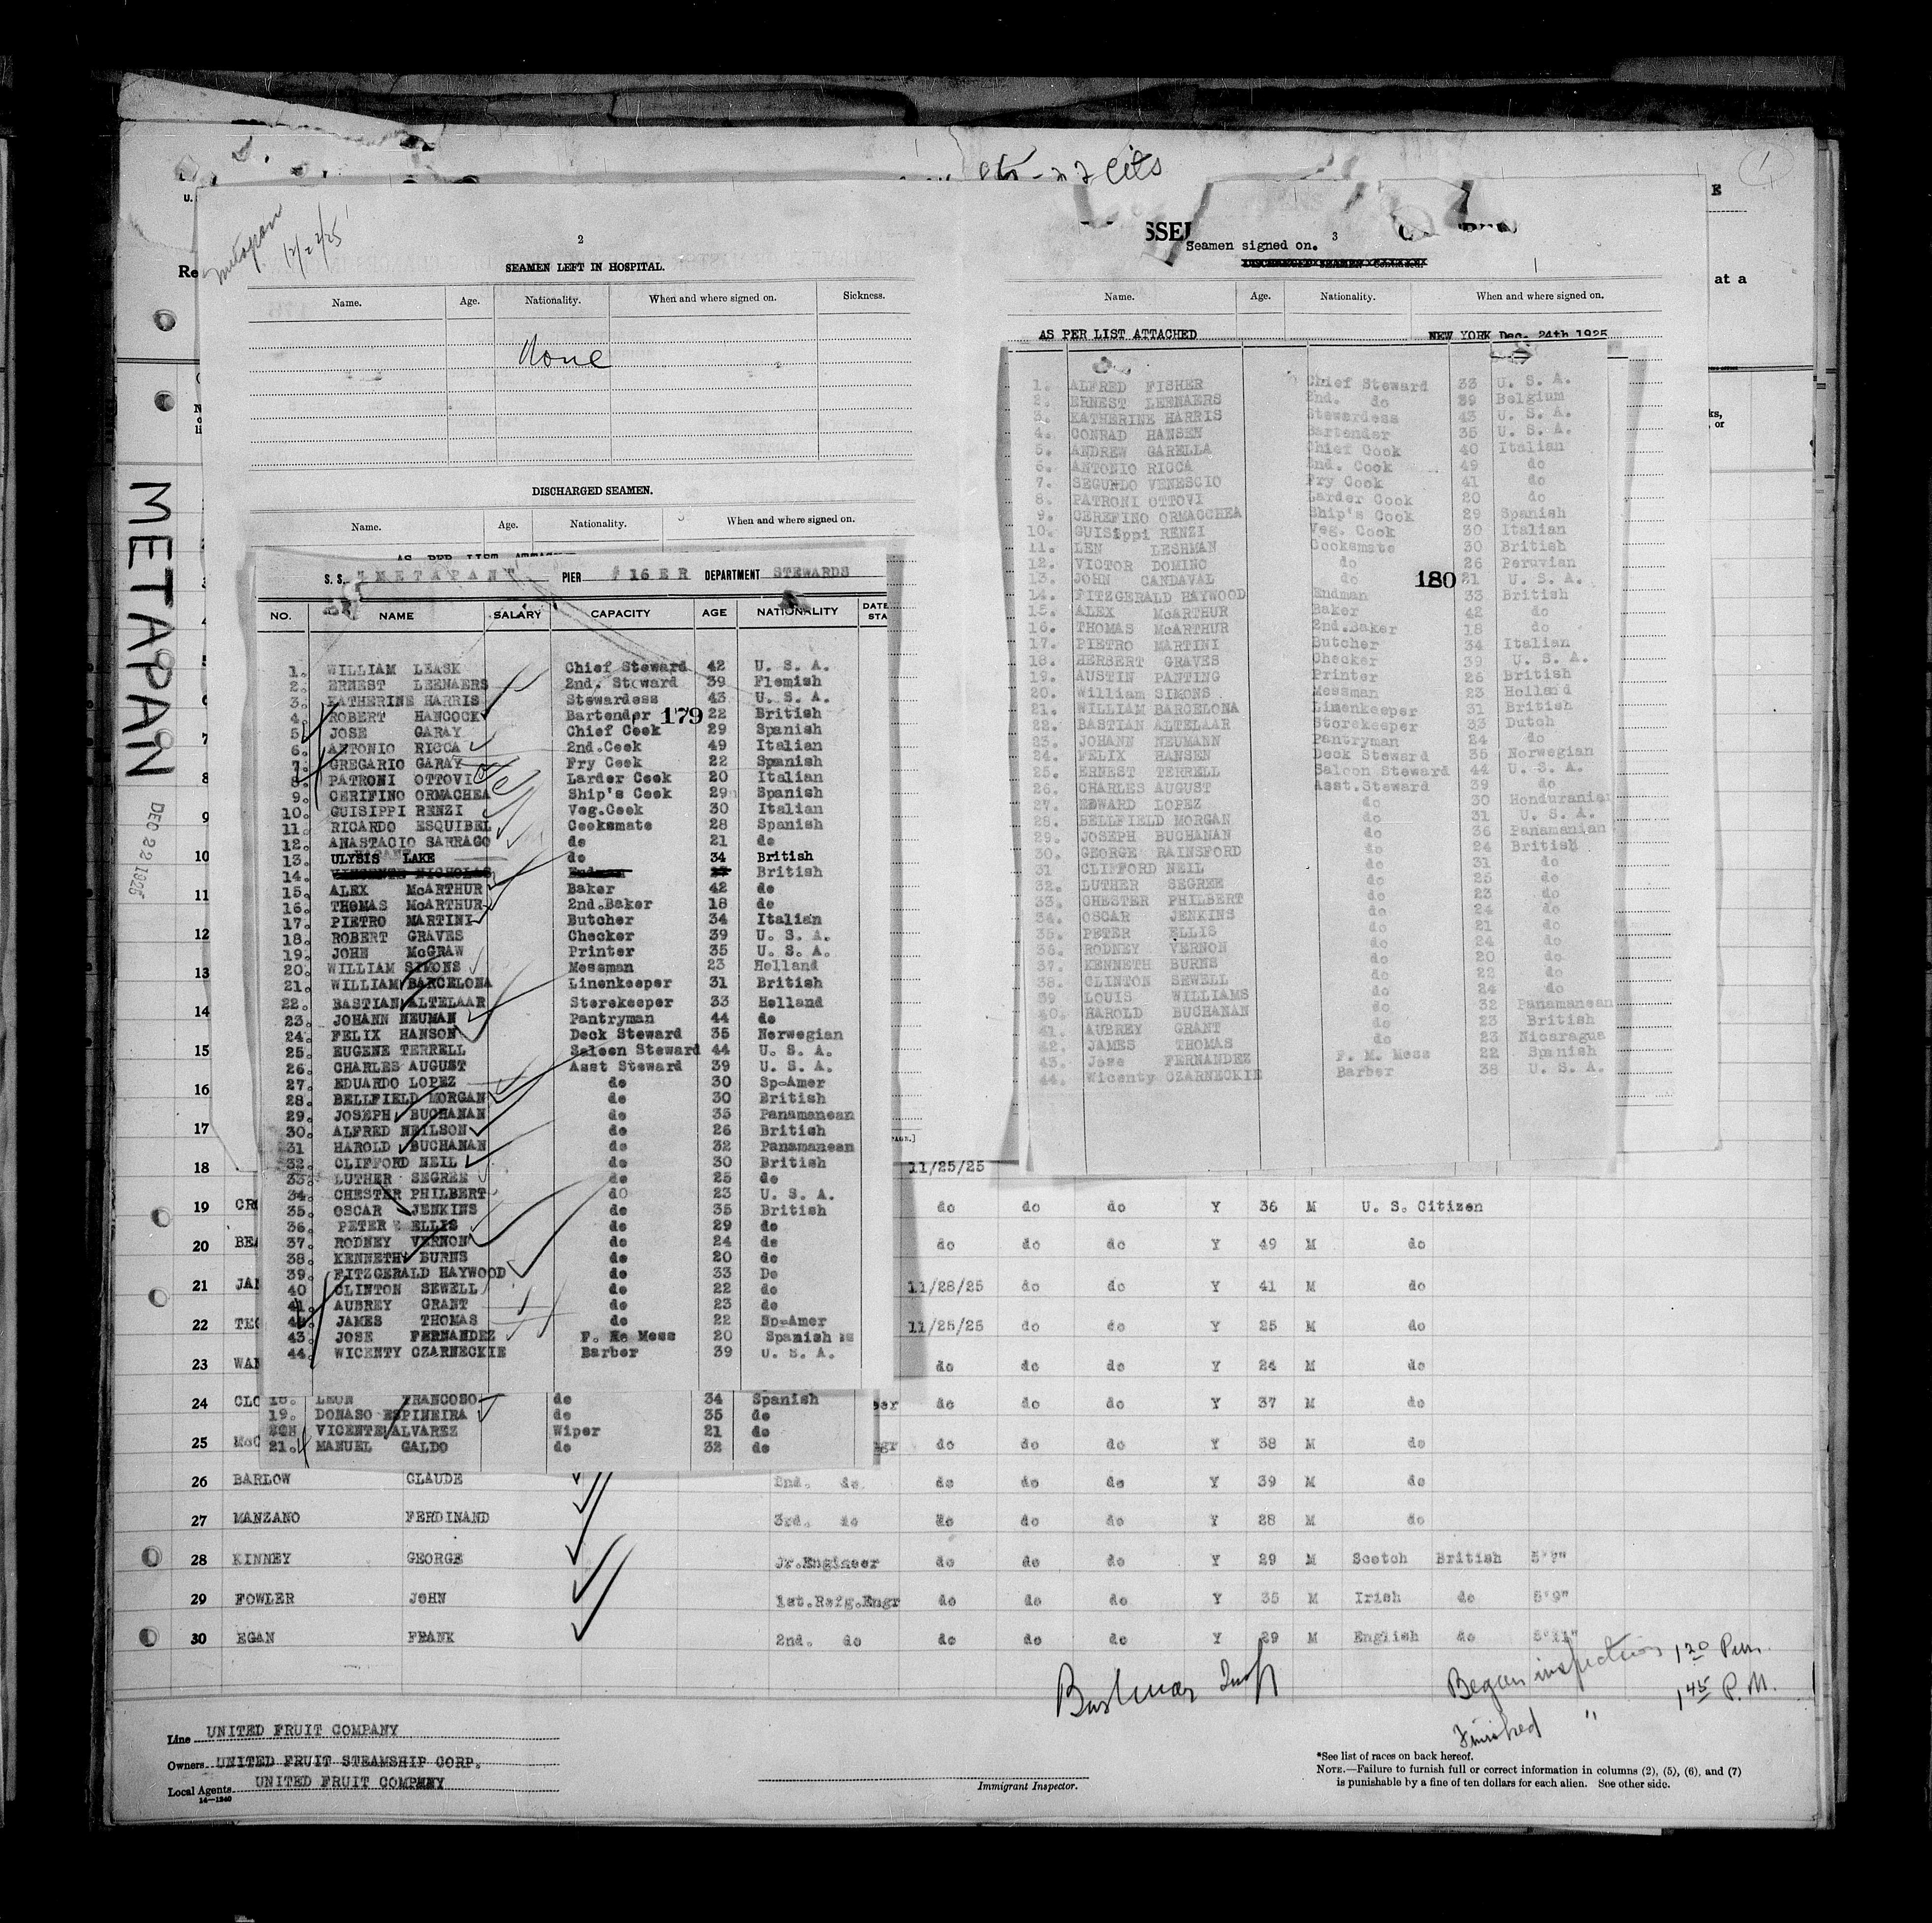 cits
U.
Re
E
at a
ks,
or
Metapan
12/22/25
METAPAN
DEC 22 1925
2
SEAMEN LEFT IN HOSPITAL.
Name. Age. Nationality. When and where signed on. Sickness.
None
DISCHARGED SEAMEN.
Name. Age. Nationality. When and where signed on.
AS PER LIST ATTACHED
S. S. METAPAN PIER # 16 E R DEPARTMENT STEWARDS
NO. NAME SALARY CAPACITY AGE NATIONALITY DATE STA
179
1. WILLIAM LEASK Chief Steward 42 U. S. A.
2. ERNEST LEENAERS 2nd. Steward 39 Flemish
3. KATHERINE HARRIS Stewardess 43 U. S. A.
4. ROBERT HANCOCK Bartender 22 British
5. JOSE GARAY Chief Cook 29 Spanish
6. ANTONIO RICCA 2nd.Cook 49 Italian
7. GREGARIO GARAY Fry Cook 22 Spanish
8. PATRONI OTTOVI Larder Cook 20 Italian
9. CERIFINO ORMACHEA Ship's Cook 29 Spanish
10. GUISIPPI RENZI Veg.Cook 30 Italian
11. RICARDO ESQUIBEL Cooksmate 28 Spanish
12. ANASTACIO SARRAGO do 21 do
13. ULYSIS LAKE do 34 British
14. VINCENTE NICHOLAS Endman British
15. ALEX McARTHUR Baker 42 do
16. THOMAS McARTHUR 2nd.Baker 18 do
17. PIETRO MARTINI Butcher 34 Italian
18. ROBERT GRAVES Checker 39 U. S. A.
19. JOHN McGRAW Printer 35 U. S. A.
20. WILLIAM SIMONS Messman 23 Holland
21. WILLIAM BARCELONA Linenkeeper 31 British
22. BASTIAN ALTELAAR Storekeeper 33 Holland
23. JOHANN NEUMAN Pantryman 44 do
24. FELIX HANSON Deck Steward 35 Norwegian
25. EUGENE TERRELL Saloon Steward 44 U. S. A.
26. CHARLES AUGUST Asst Steward 39 U. S. A.
27. EDUARDO LOPEZ do 30 Sp-Amer
28. BELLFIELD MORGAN do 30 British
29. JOSEPH BUCHANAN do 35 Panamanean
30. ALFRED NEILSON do 26 British
31 HAROLD BUCHANAN do 32 Panamanean
32. CLIFFORD NEIL do 30 British
33. LUTHER SEGREE do 25 do
34. CHESTER PHILBERT do 23 U. S. A.
35. OSCAR JENKINS do 35 British
36. PETER ELLIS do 29 do
37. RODNEY VERNON do 24 do
38. KENNETH BURNS do 20 do
39. FITZGERALD HAYWOOD do 33 Do
40 CLINTON SEWELL do 22 do
41. AUBREY GRANT do 23 do
42. JAMES THOMAS do 22 Sp-Amer
43. JOSE FERNANDEZ Mess 20 Spanish
44. WICENTY CZARNECKIE Barber 39 U. S. A.
18. LEON FRANCOSO do 34 Spanish
19. DONASO ESPINEIRA do 35 do
VICENTE ALVAREZ Wiper 21 do
21. MANUEL GALDO do 32 do
3
Seamen signed on.
DISCHARGED SEAMEN
Name. Age. Nationality. When and where signed on.
AS PER LIST ATTACHED NEW YORK Dec. 24th 1925
180
1. ALFRED FISHER Chief Steward 33 U. S. A.
2. ERNEST LEENAERS 2nd. do 39 Belgium
3. KATHERINE HARRIS Stewardess 43 U. S. A.
4. CONRAD HANSEN Bartender 35 U. S. A.
5. ANDREW GARELLA Chief Cook 40 Italian
6. ANTONIO RICCA 2nd. Cook 49 do
7. SEGUNDO VENESCIO Fry Cook 41 do
8. PATRONI OTTOVI Larder Cook 20 do
9. CEREFINO ORMACCHEA Ship's Cook 29 Spanish
10. GUISippi RENZI Veg. Cook 30 Italian
11. LEN LESHMAN Cooksmate 30 British
12. VICTOR DOMINO do 26 Peruvian
13. JOHN CANDAVAL do 21 U. S. A.
14. FITZGERALD HAYWOOD Endman 33 British
15. ALEX McARTHUR Baker 42 do
16. THOMAS McARTHUR 2nd.Baker 18 do
17. PIETRO MARTINI Butcher 34 Italian
18. HERBERT GRAVES Checker 39 U. S. A.
19. AUSTIN PANTING Printer 26 British
20. William SIMONS Messman 23 Holland
21. WILLIAM BARCELONA Linenkeeper 31 British
22. BASTIAN ALTELAAR Storekeeper 33 Dutch
23. JOHANN NEUMANN Pantryman 24 do
24. FELIX HANSEN Deck Steward 35 Norwegian
25. ERNEST TERRELL Saloon Steward 44 U. S. A.
26. CHARLES AUGUST Asst.Steward 39 do
27. EDWARD LOPEZ do 30 Honduranian
28. BELLFIELD MORGAN do 31 U. S. A.
29. JOSEPH BUCHANAN do 36 Panamanian
30. GEORGE RAINSFORD do 24 British
31 CLIFFORD NEIL do 31 do
32. LUTHER SEGREE do 25 do
33. CHESTER PHILBERT do 23 do
34. OSCAR JENKINS do 24 do
35. PETER ELLIS do 21 do
36. RODNEY VERNON do 24 do
37. KENNETH BURNS do 20 do
38. CLINTON SEWELL do 22 do
39 LOUIS WILLIAMS do 24 do
40. HAROLD BUCHANAN do 32 Panamanean
41. AUBREY GRANT do 23 British
42. JAMES THOMAS do 23 Nicaragua
43. Jose FERNANDEZ P. M. Mess 22 Spanish
44. Wicenty CZARNECKIE Barber 38 U. S. A.
3
4
5
6
7
8
9
10
11
12
13
14
15
16
17
18 11/25/25
19 do do do Y 36 M U. S. Citizen
20 do do do Y 49 M do
21 11/28/25 do do Y 41 M do
22 11/25/25 do do Y 25 M do
23 do do do Y 24 M do
24 CLO do do do Y 37 M do
25 McC do do do Y 38 M do
26 BARLOW CLAUDE 2nd. do do do do Y 39 M do
27 MANZANO FERDINAND 3rd. do do do do Y 28 M do
28 KINNEY GEORGE Jr.Engineer do do do Y 29 M Scotch British
29 FOWLER JOHN 1st.Refg.Engr do do do Y 35 M Irish do 5'9"
30 EGAN FRANK 2nd. do do do do Y 29 M English do 5'11"
Began inspection 1 20 P.M.
Finished " 1 45 P. M.
Line UNITED FRUIT COMPANY
Owners UNITED FRUIT STEAMSHIP CORP.
Local Agents UNITED FRUIT COMPANY
14—1240
Immigrant Inspector.
*See list of races on back hereof.
NOTE.—Failure to furnish full or correct information in columns (2), (5), (6), and (7)
is punishable by a fine of ten dollars for each alien. See other side.